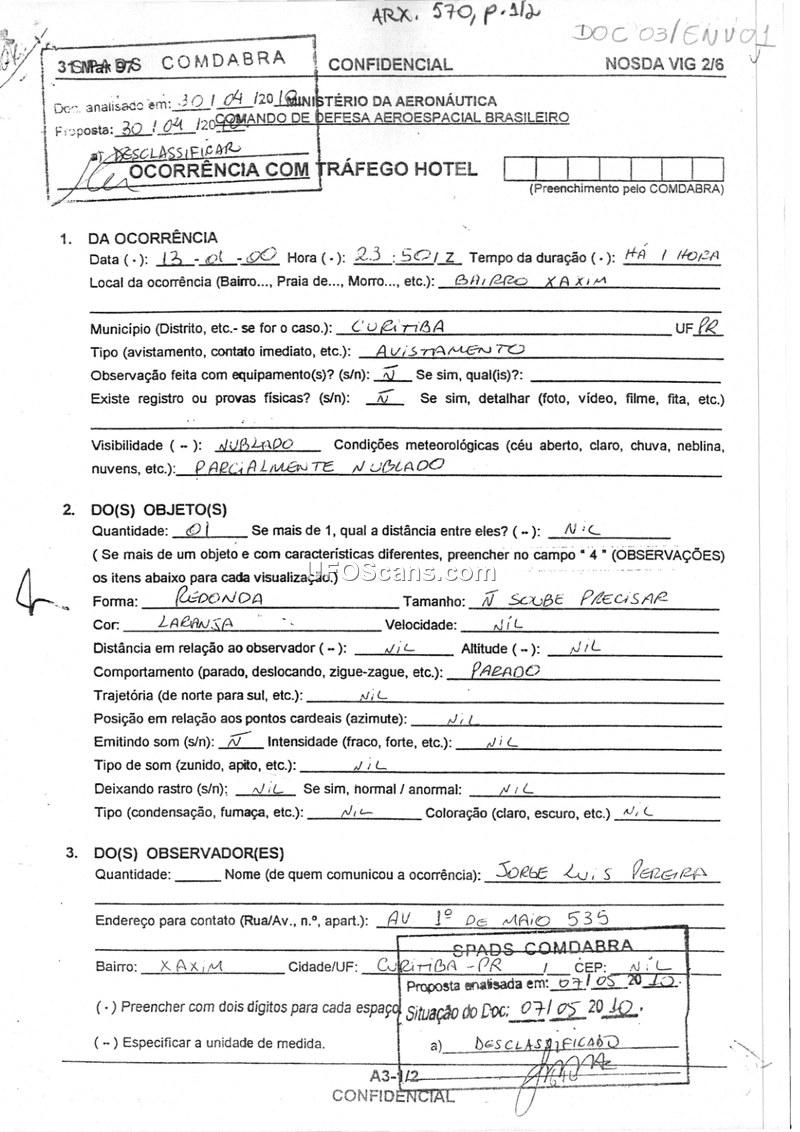 ARX. 570, p. 1/2
DOC 03/ENV01
SPADS COMDABRA
31 Mar 97
CONFIDENCIAL
NOSDA VIG 2/6
Doc. analisado em: 30 / 04 /2010
MINISTÉRIO DA AERONÁUTICA
Proposta: 30 / 04 /2010
COMANDO DE DEFESA AEROESPACIAL BRASILEIRO
a) DESCLASSIFICAR
OCORRÊNCIA COM TRÁFEGO HOTEL
(Preenchimento pelo COMDABRA)
1. DA OCORRÊNCIA
Data ( · ): 13 - 01 - 00 Hora ( · ): 23 : 50 / Z Tempo da duração ( · ): HÁ 1 HORA
Local da ocorrência (Bairro..., Praia de..., Morro..., etc.): BAIRRO XAXIM
Município (Distrito, etc.- se for o caso.): CURITIBA UF PR
Tipo (avistamento, contato imediato, etc.): AVISTAMENTO
Observação feita com equipamento(s)? (s/n): N̄ Se sim, qual(is)?:
Existe registro ou provas físicas? (s/n): N̄ Se sim, detalhar (foto, vídeo, filme, fita, etc.)
Visibilidade ( -- ): NUBLADO Condições meteorológicas (céu aberto, claro, chuva, neblina,
nuvens, etc.): PARCIALMENTE NUBLADO
2. DO(S) OBJETO(S)
Quantidade: 01 Se mais de 1, qual a distância entre eles? ( -- ): NIL
( Se mais de um objeto e com características diferentes, preencher no campo " 4 " (OBSERVAÇÕES)
os itens abaixo para cada visualização.)
UFOScans.com
Forma: REDONDA Tamanho: N̄ SOUBE PRECISAR
Cor: LARANJA Velocidade: NIL
Distância em relação ao observador ( -- ): NIL Altitude ( -- ): NIL
Comportamento (parado, deslocando, zigue-zague, etc.): PARADO
Trajetória (de norte para sul, etc.): NIL
Posição em relação aos pontos cardeais (azimute): NIL
Emitindo som (s/n): N̄ Intensidade (fraco, forte, etc.): NIL
Tipo de som (zunido, apito, etc.): NIL
Deixando rastro (s/n): NIL Se sim, normal / anormal: NIL
Tipo (condensação, fumaça, etc.): NIL Coloração (claro, escuro, etc.) NIL
3. DO(S) OBSERVADOR(ES)
Quantidade: Nome (de quem comunicou a ocorrência): JORGE LUIS PEREIRA
Endereço para contato (Rua/Av., n.º, apart.): AV 1º DE MAIO 535
SPADS COMDABRA
Bairro: XAXIM Cidade/UF: CURITIBA - PR / CEP: NIL
Proposta analisada em: 07 / 05 20 10.
( · ) Preencher com dois dígitos para cada espaço
Situação do Doc: 07 / 05 20 10.
( -- ) Especificar a unidade de medida.
a) DESCLASSIFICADO
A3-1/2
CONFIDENCIAL